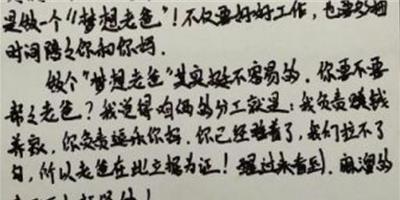 是做一个"梦想老爸"！不仅要好好工作，也要多抽
时间陪之你和你妈.
做个"梦想老爸"其实挺不容易的. 你要不要
帮之老爸？我觉得咱俩的分工就是：我负责赚钱
养家, 你负责逗乐你妈. 你已经睡着了, 我们拉不了
勾, 所以老爸在此立据为证！醒过来看到, 麻溜的